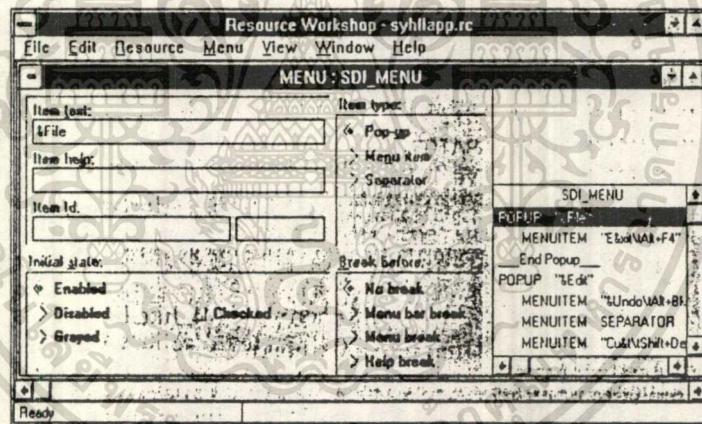 Resource Workshop - syhllapp.rc
File Edit Resource Menu View Window Help
MENU : SDI_MENU
Item text:
&File
Item help:
Item Id.
Initial state:
Enabled
Disabled
Grayed
Checked
Item type:
Pop-up
Menu item
Separator
Break before:
No break
Menu bar break
Menu break
Help break
SDI_MENU
POPUP "&File"
MENUITEM "E&xit\tAlt+F4"
End Popup
POPUP "&Edit"
MENUITEM "&Undo\tAlt+B
MENUITEM SEPARATOR
MENUITEM "Cu&t\tShift+De
Ready